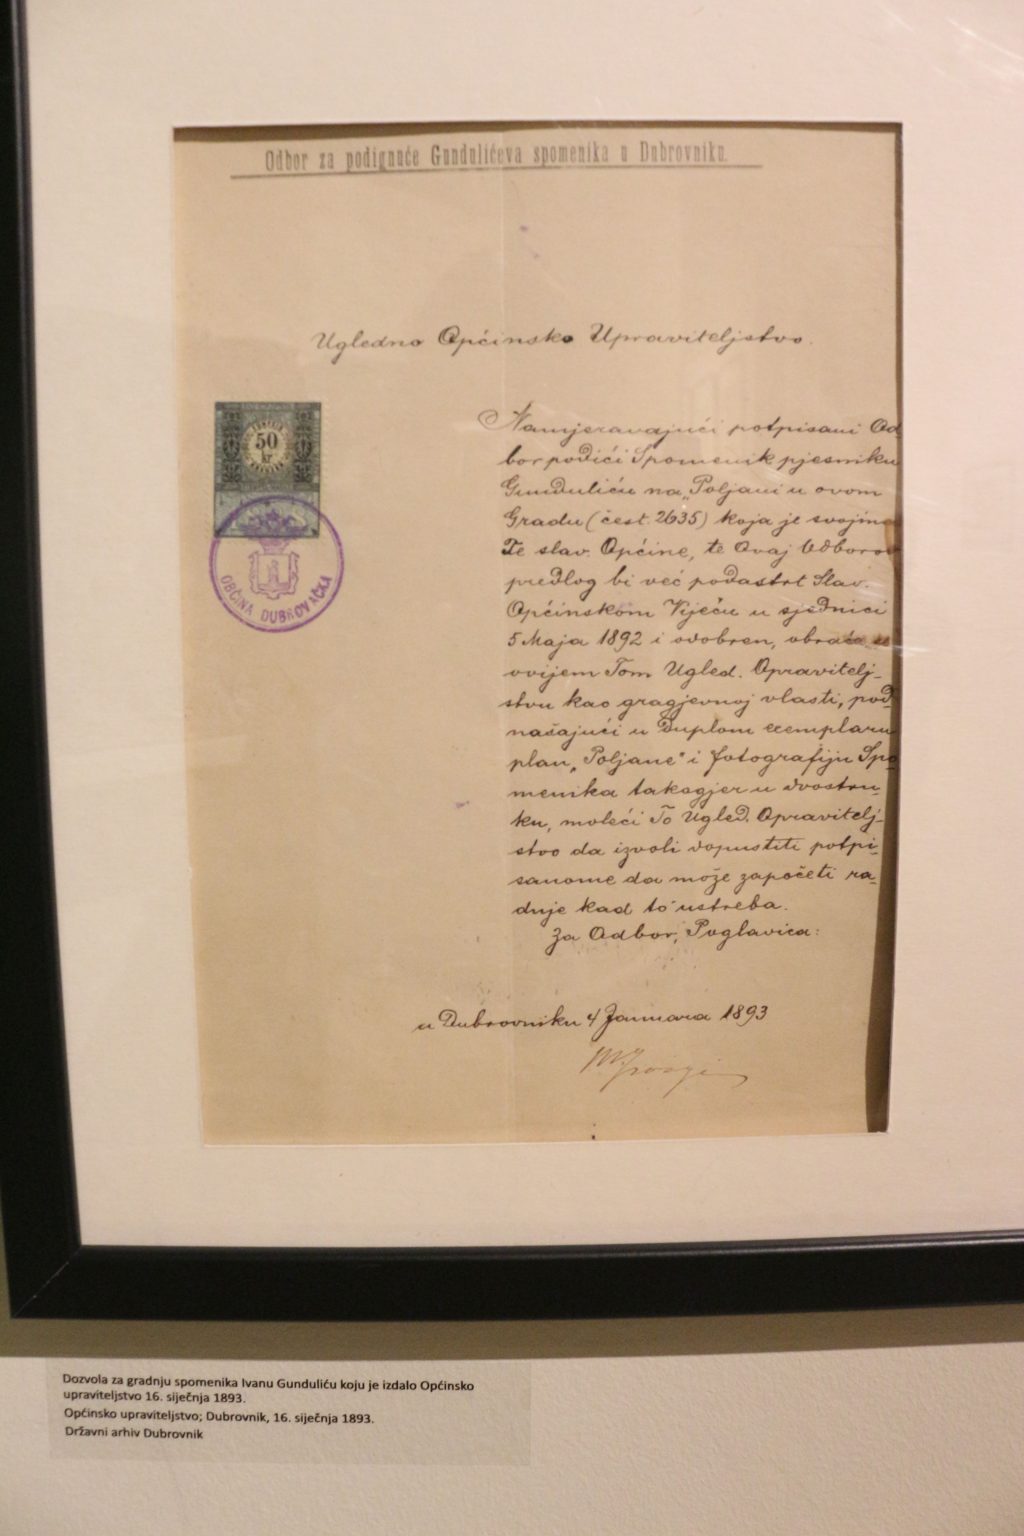 Odbor za podignuće Gundulićeva spomenika u Dubrovniku.
Ugledno Općinsko Upraviteljstvo.
50
kr
OBĆINA DUBROVAČKA
Namjeravajući potpisani Od
bor podići Spomenik pjesniku
Gunduliću na „Poljani u ovom
Gradu (čest. 2635) koja je svojina
Te slav. Općine, te Ovaj Odborov
predlog bi već podastrt Slav.
Općinskom Vijeću u sjednici
5 Maja 1892 i odobren, obraća se
ovijem Tom Ugled. Opravitelj-
stvu kao gragjevnoj vlasti, pod
našajući u duplom exemplaru
plan „Poljane" i fotografiju Spo
menika takogjer u dvostru-
ku, moleći To Ugled. Opravitelj-
stvo da izvoli dopustiti potpi-
sanome da može započeti ra-
dnje kad to ustreba.
Za Odbor, Poglavica:
u Dubrovniku 4 Januara 1893
Dozvola za gradnju spomenika Ivanu Gunduliću koju je izdalo Općinsko
upraviteljstvo 16. siječnja 1893.
Općinsko upraviteljstvo; Dubrovnik, 16. siječnja 1893.
Državni arhiv Dubrovnik